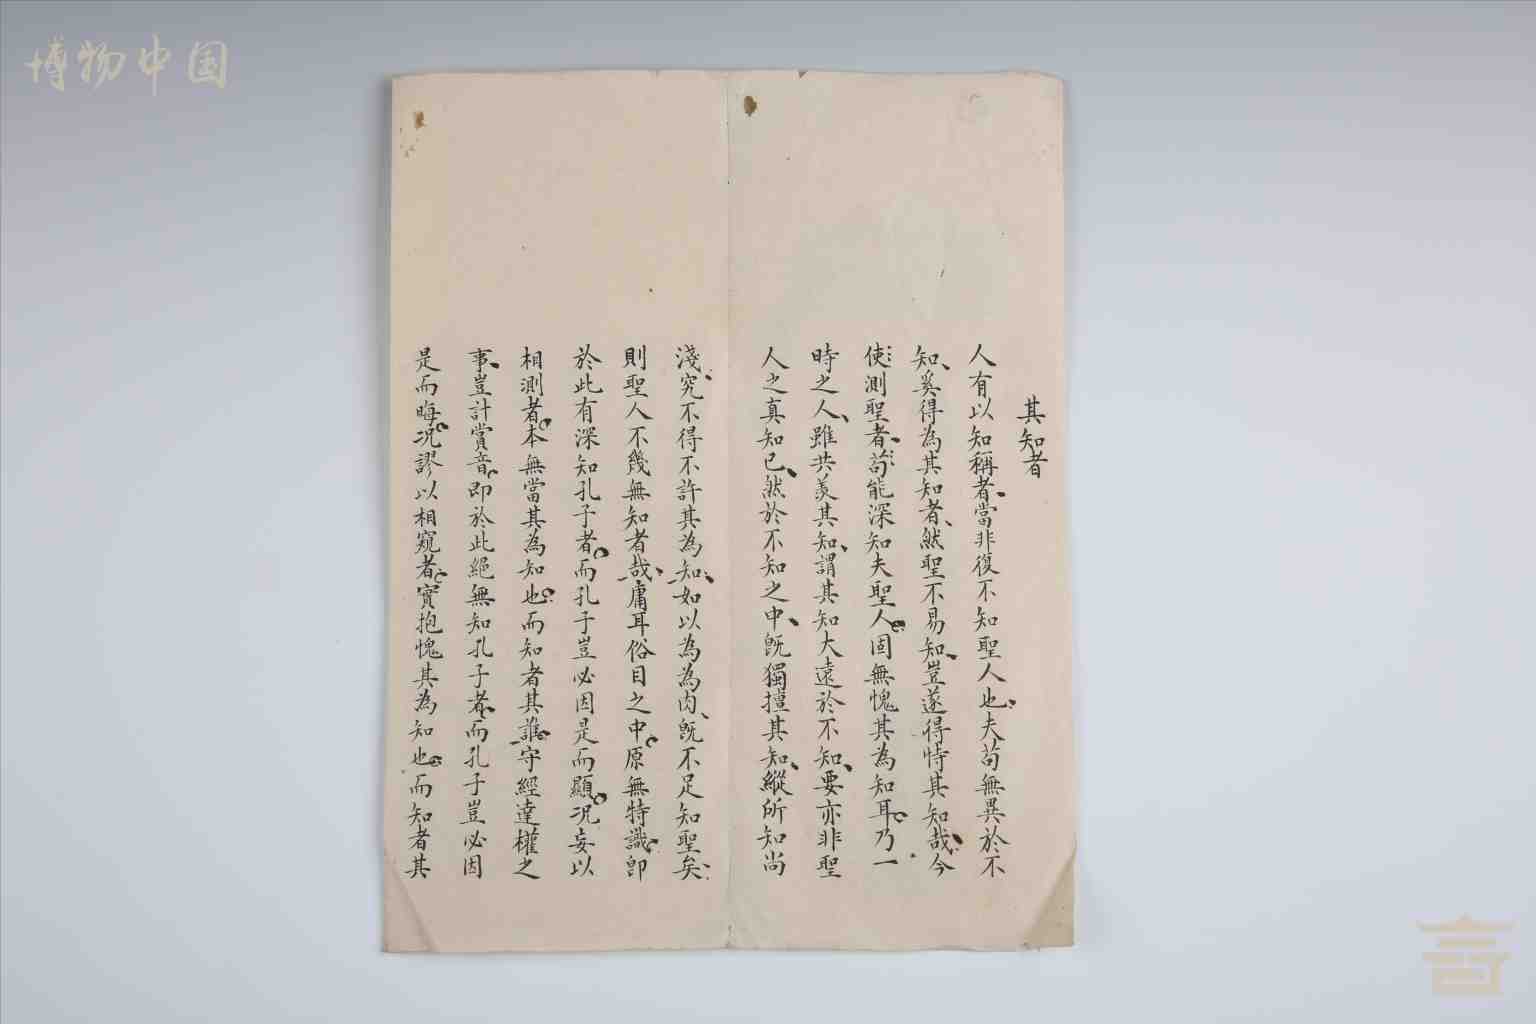 博物中国
其知者
人有以知稱者當非復不知聖人也夫苟無異於不
知奚得為其知者然聖不易知豈遂得恃其知哉今
使測聖者苟能深知夫聖人固無愧其為知耳乃一
時之人雖共羨其知謂其知大遠於不知要亦非聖
人之真知已然於不知之中既獨擅其知縱所知尚
淺究不得不許其為知如以為為肉既不足知聖矣
則聖人不幾無知者哉庸耳俗目之中原無特識即
於此有深知孔子者而孔子豈必因是而顯況妄以
相測者本無當其為知也而知者其誰守經達權之
事豈計賞音即於此絕無知孔子者而孔子豈必因
是而晦況謬以相窺者實抱愧其為知也而知者其